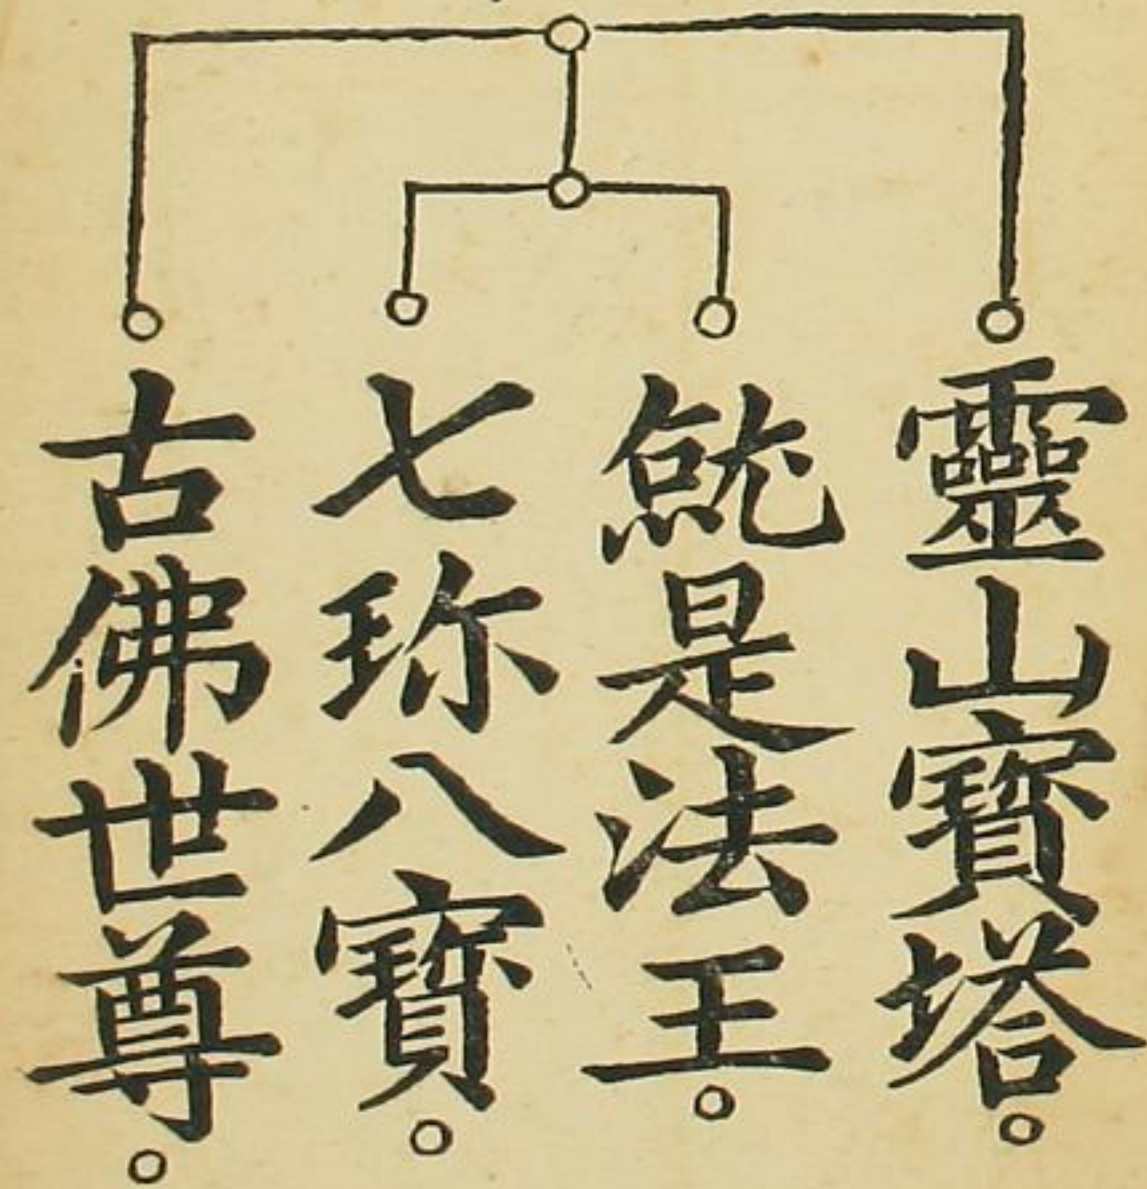 靈山寳塔。
就是法王。
七珎八寳。
古佛世尊。